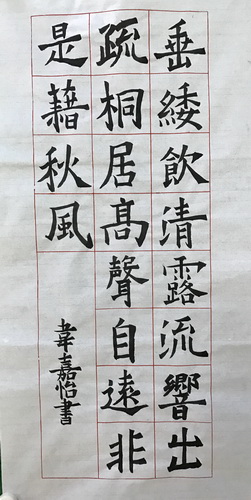 垂緌飲清露流響出
疏桐居髙聲自遠非
是藉秋風
韋嘉怡書